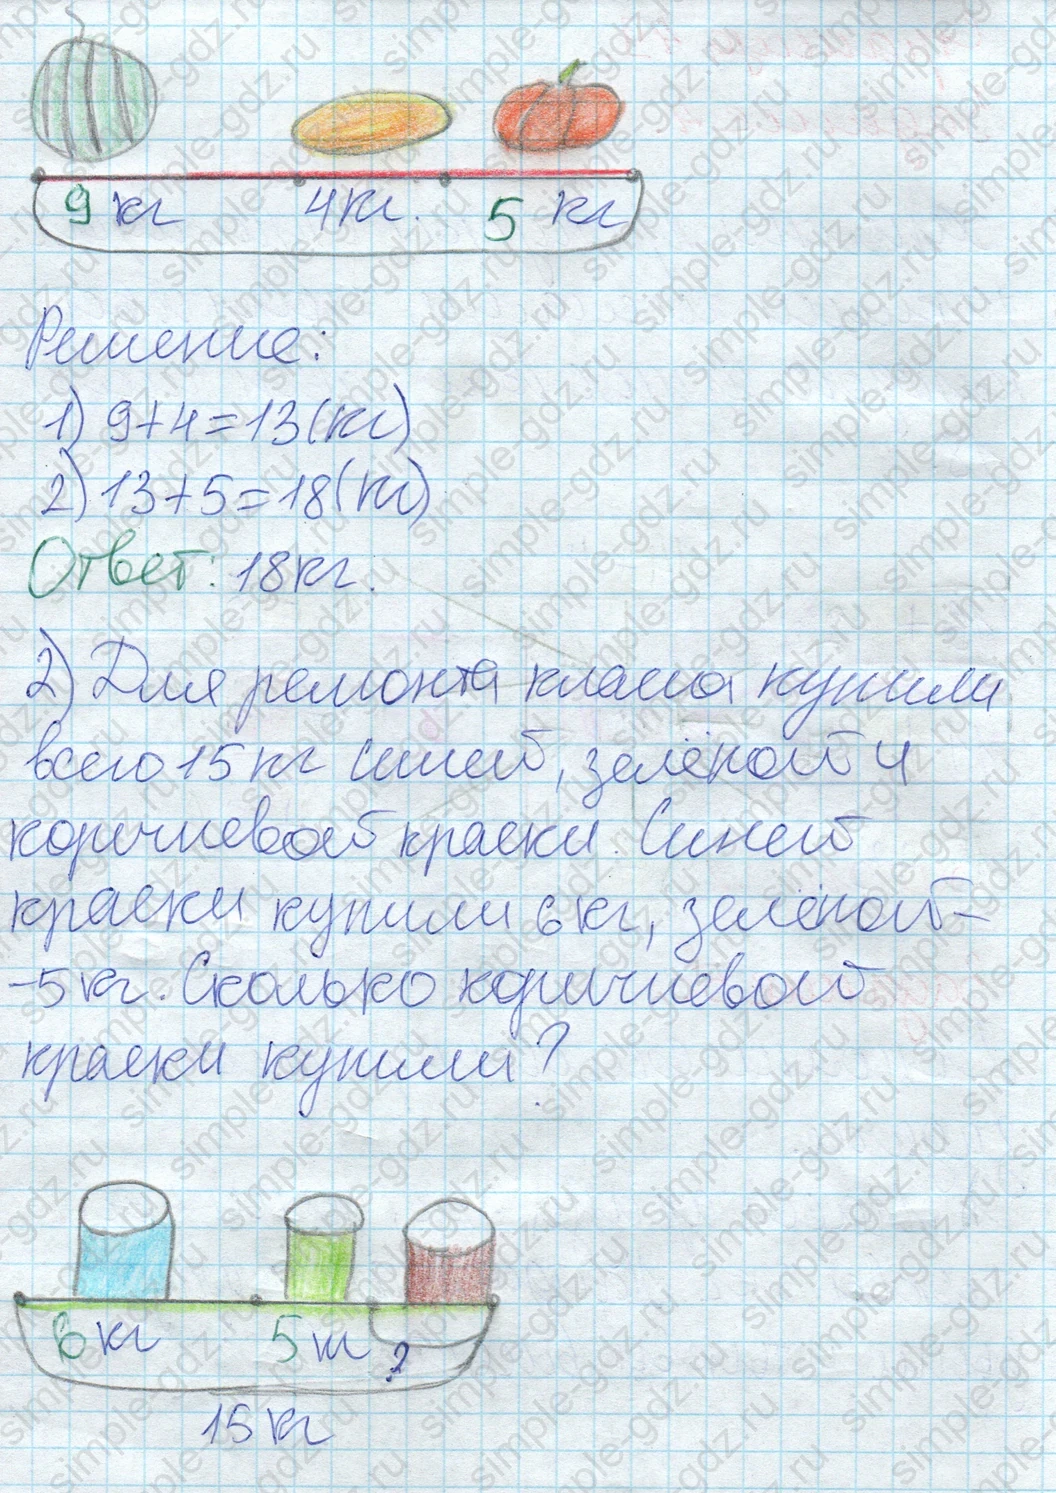 9 кг 4кг. 5 кг
Решение:
1) 9+4=13(кг)
2) 13+5=18(кг)
Ответ: 18кг.
2) Для ремонта класса купили
всего 15 кг синей, зелёной и
коричневой краски. Синей
краски купили 6 кг, зелёной-
-5 кг. Сколько коричневой
краски купили?
6 кг 5 кг ?
15 кг
simple-gdz.ru